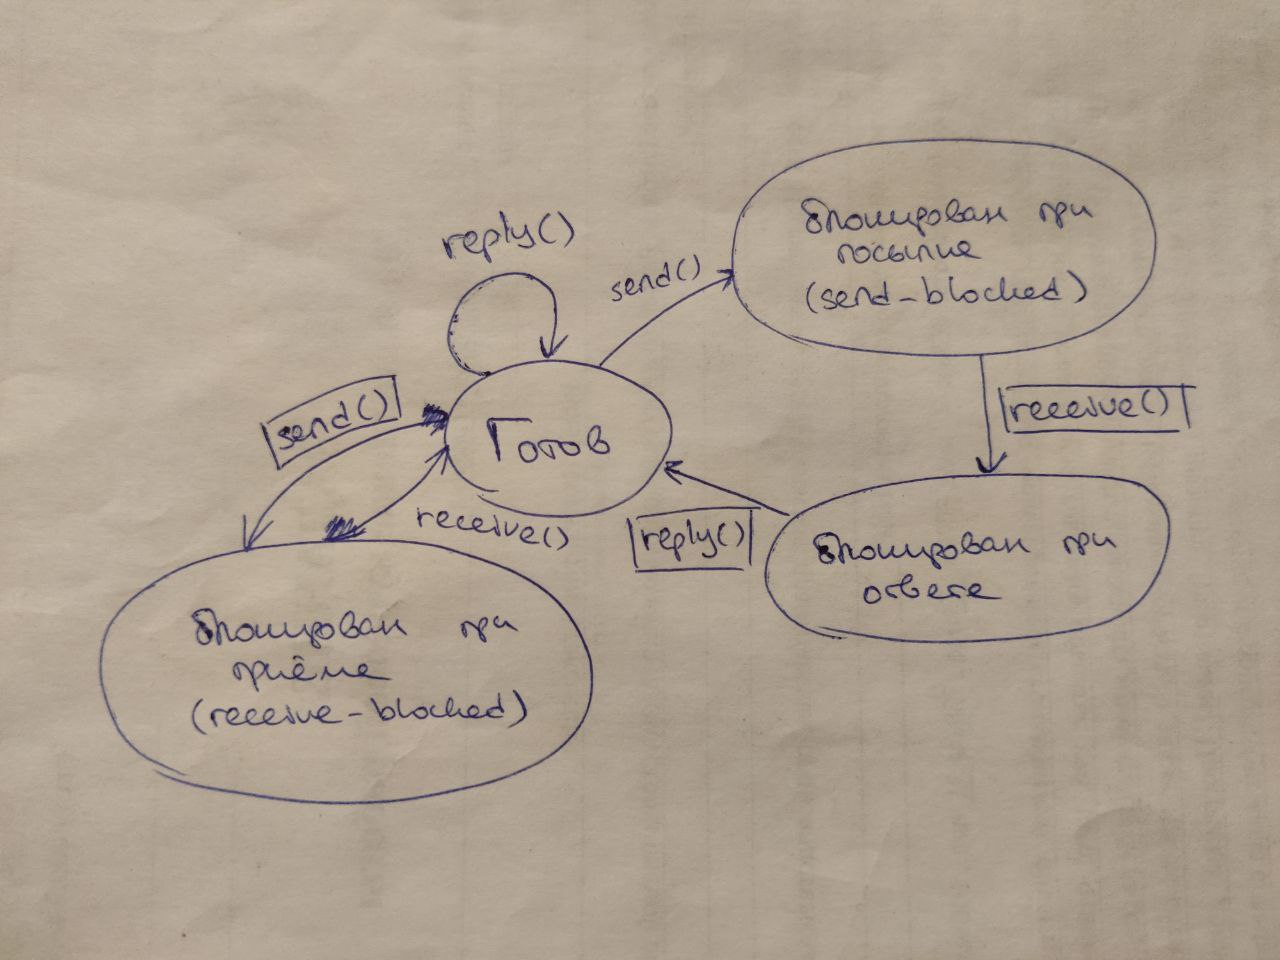 reply()
send()
блокирован при
посылке
(send-blocked)
send()
receive()
Готов
receive()
reply()
блокирован при
ответе
блокирован при
приёме
(receive-blocked)